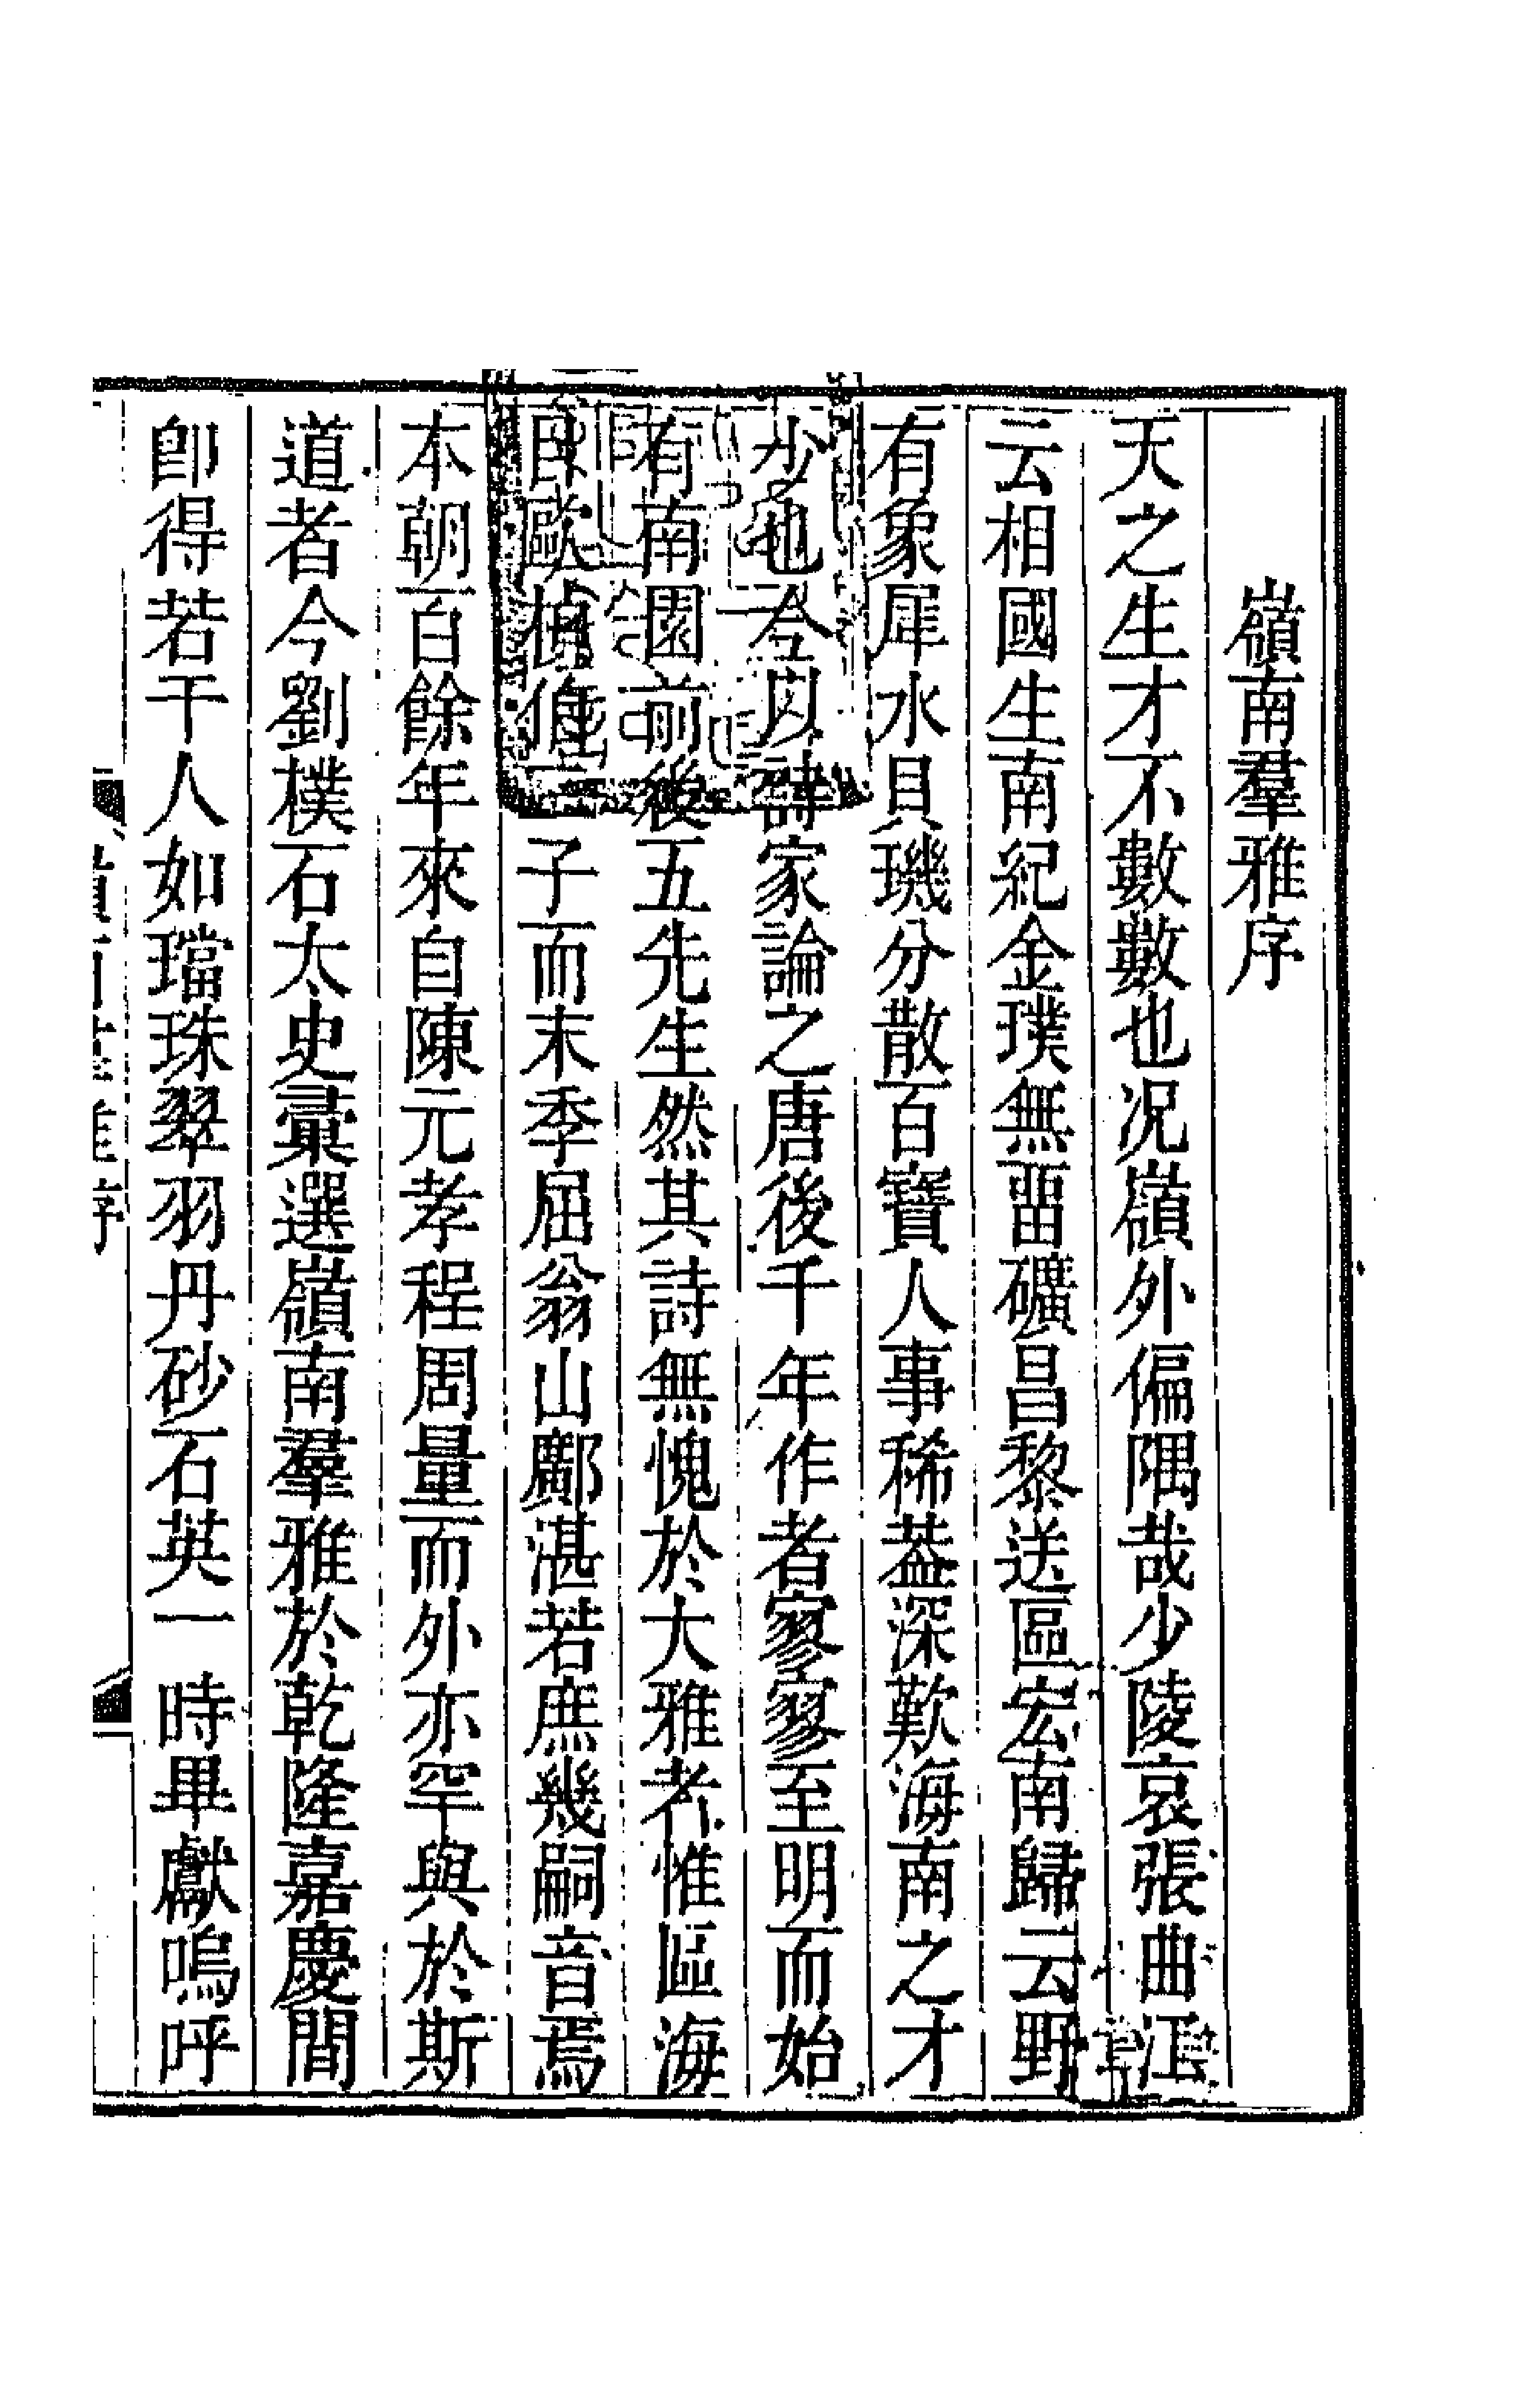 嶺南羣雅序
天之生才不數數也況嶺外偏隅哉少陵哀張曲江
云相國生南紀金璞無畱礦昌黎送區宏南歸云野
有象犀水貝璣分散百寶人事稀葢深歎海南之才
少也今以詩家論之唐後千年作者寥寥至明而始
有南園前後五先生然其詩無愧於大雅者惟區海
目歐楨伯二子而末季屈翁山鄺湛若庶幾嗣音焉
本朝百餘年來自陳元孝程周量而外亦罕與於斯
道者今劉樸石太史彙選嶺南羣雅於乾隆嘉慶間
卽得若干人如璫珠翠羽丹砂石英一時畢獻嗚呼